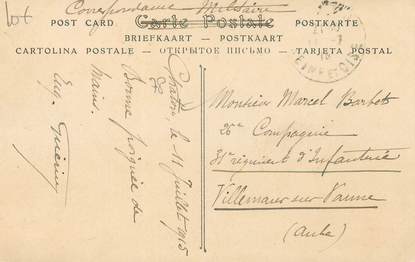 Lot
Correspondance Militaire
Carte Postale
POST CARD POSTKARTE
BRIEFKAART — POSTKAART
CARTOLINA POSTALE — ОТКРЫТОЕ ПИСЬМО — TARJETA POSTAL
Chatou, le 11 Juillet 1915
Bonne poignée de
mains.
Eug.
Monsieur Marcel Barbot
20e Compagnie
31e régiment d'Infanterie
Villemaur sur Vanne
(Aube)